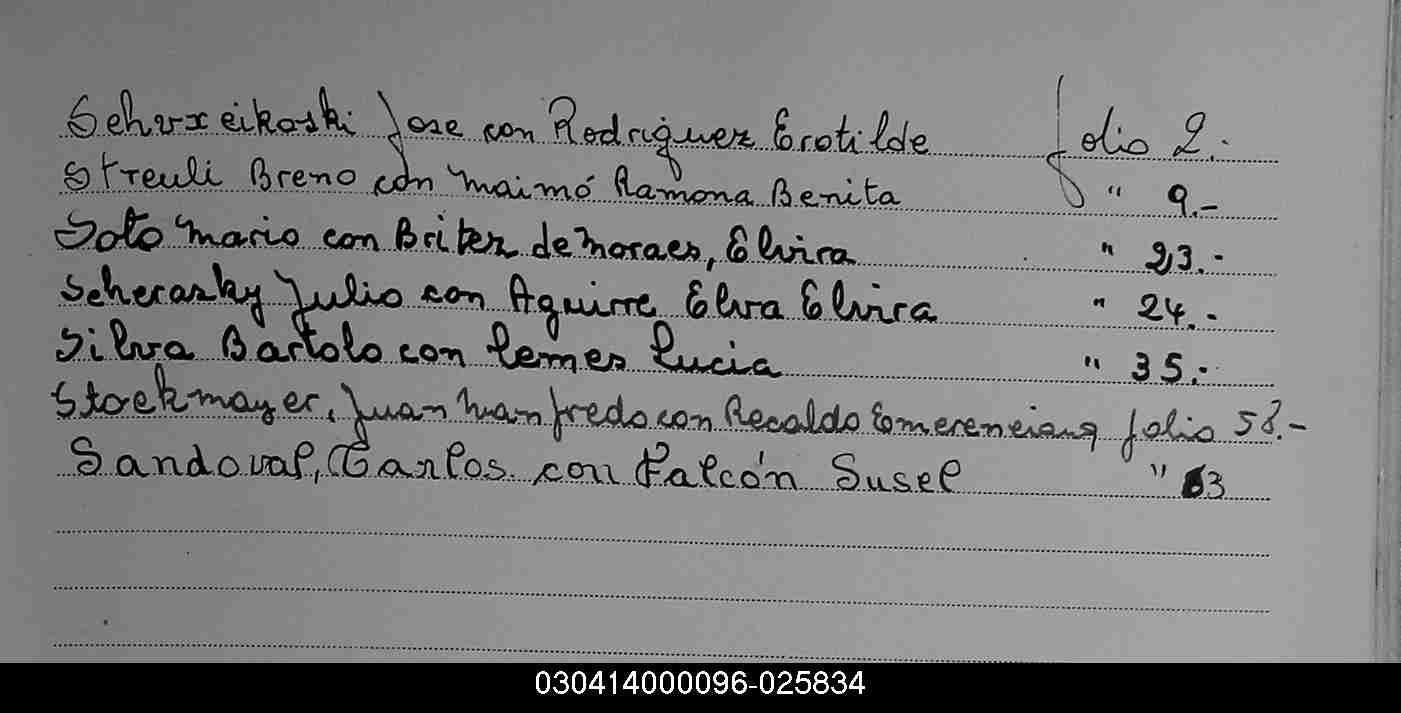 Schvxeikoski Jose con Rodriguez Erotilde folio 2.-
Streuli Breno con Maimó Ramona Benita " 9.-
Soto Mario con Britez de Moraes, Elvira " 23.-
Scherasky Julio con Aguirre Elva Elvira " 24.-
Silva Bartolo con Lemes Lucia " 35.-
Stockmayer, Juan Manfredo con Recaldo Emerenciana folio 58.-
Sandoval, Carlos con Falcón Susel " 63
030414000096-025834